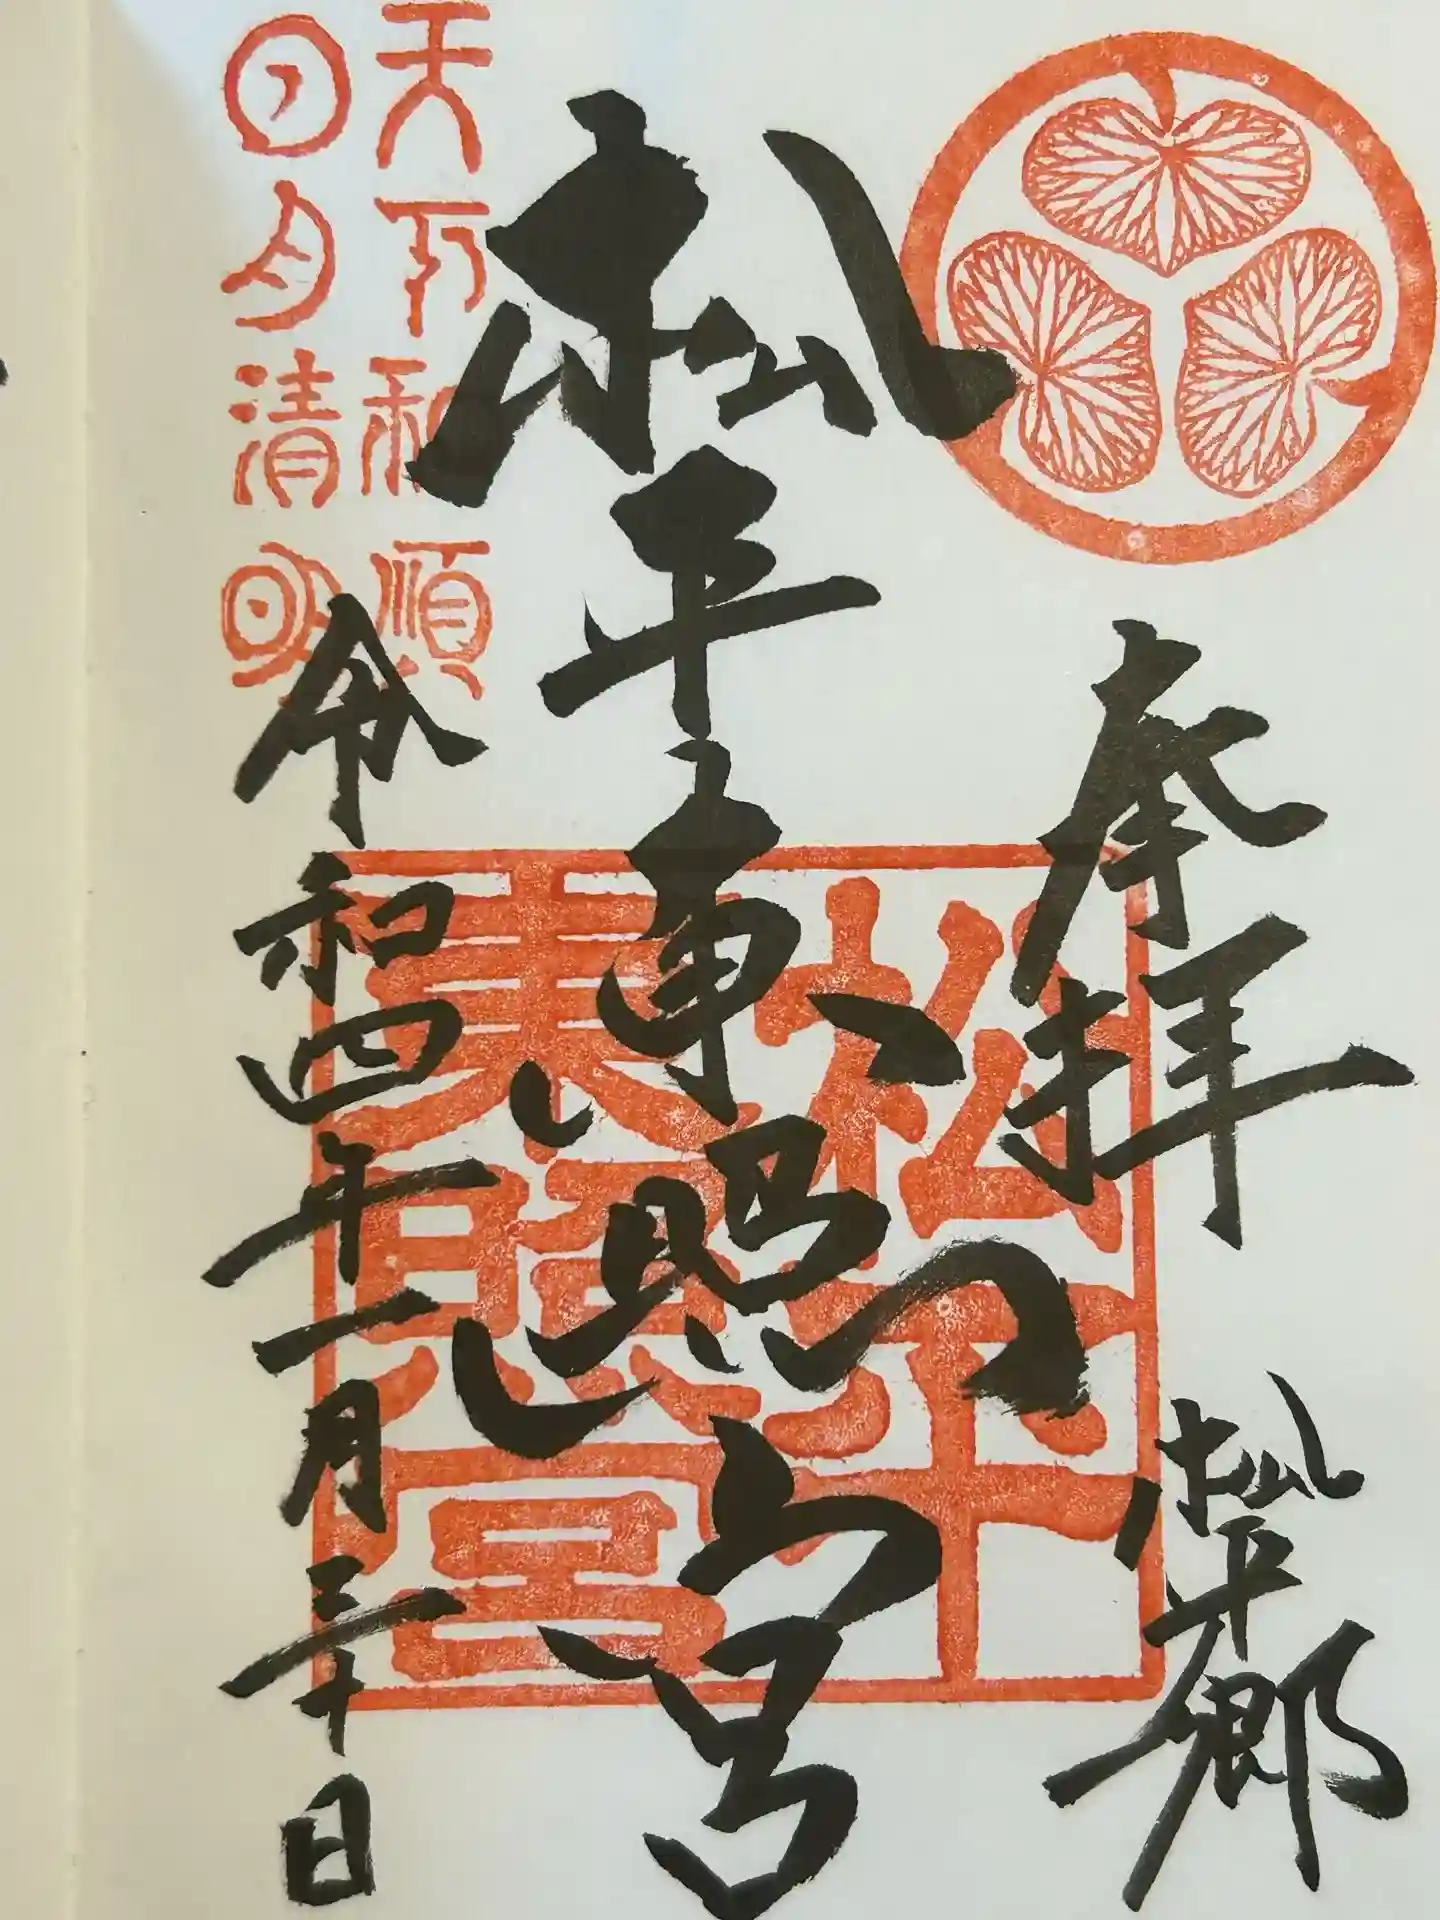 奉拝
松平郷
松平東照宮
松平
東照宮
天下和順
日月清明
令和四年一月三十日